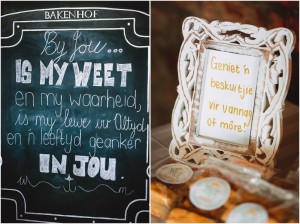 BAKENHOF
By Jou...
IS MY WEET
en my waarheid,
is my lewe vir Altyd
en 'n leeftyd geanker
IN JOU.
Geniet 'n
beskuitjie
vir vannag
of môre!